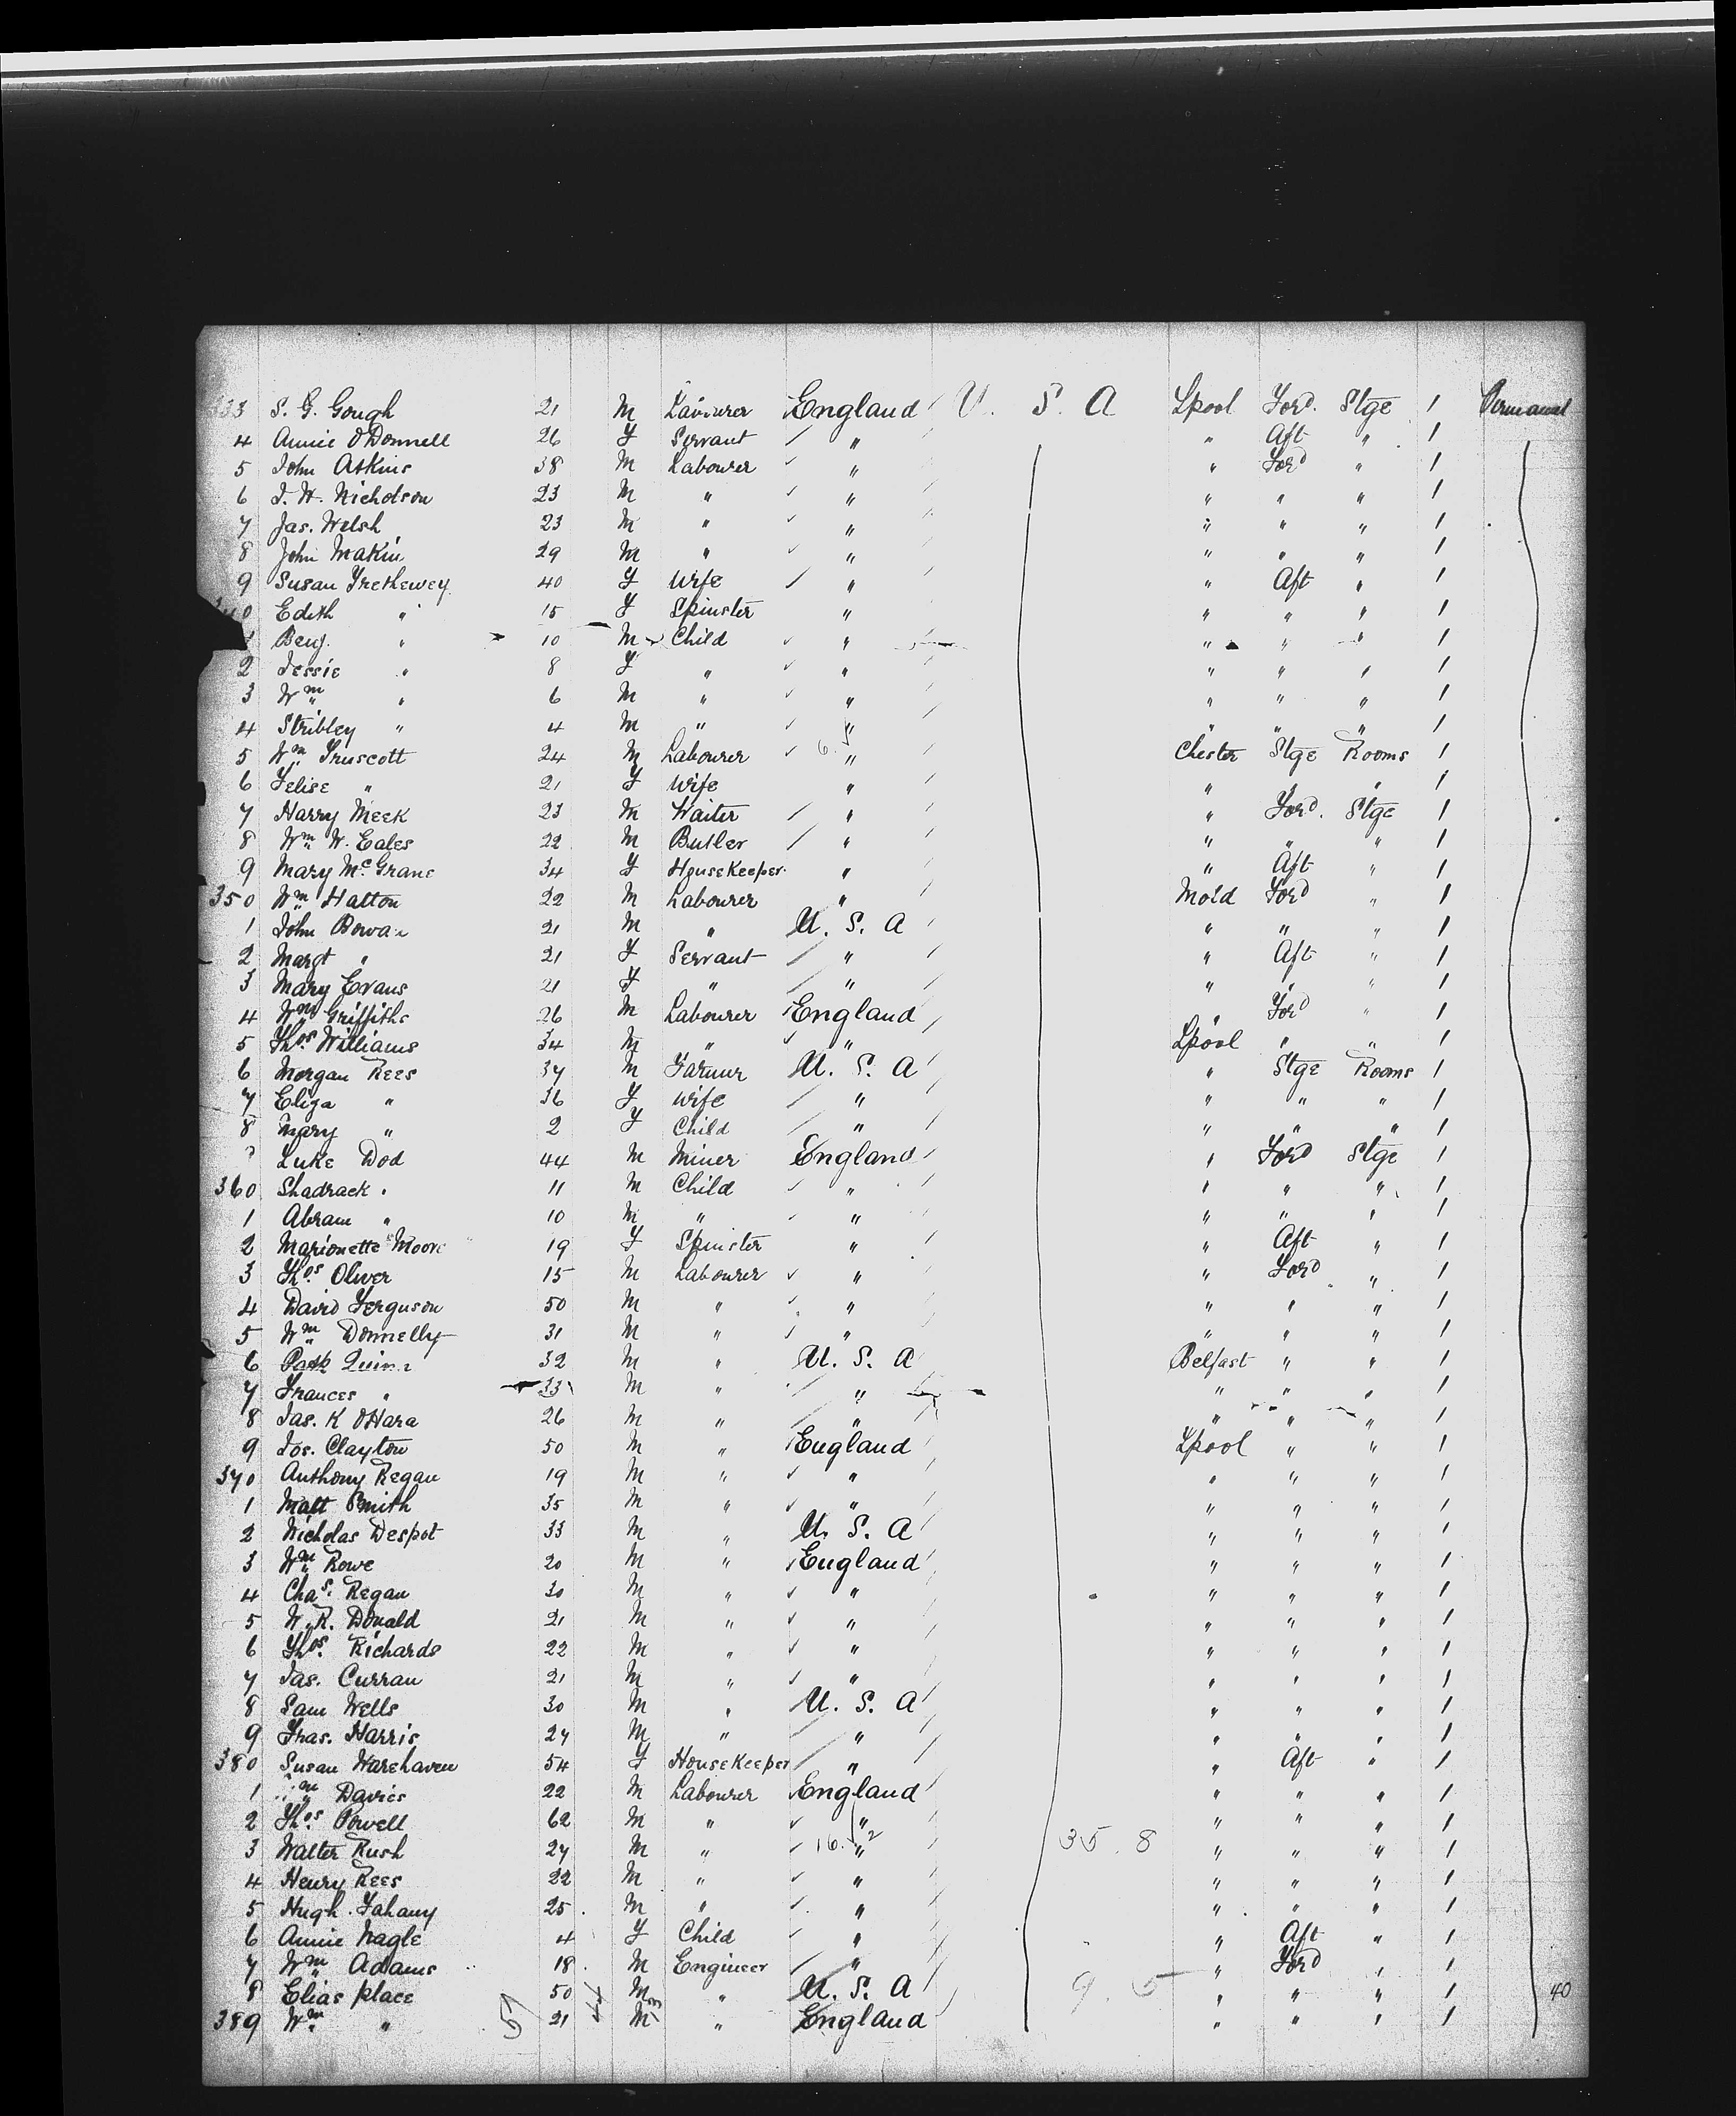 333 S. G. Gough 21 M Labourer England U. S. A Lpool Ford. Stge 1 Permanent
4 Annie O'Donnell 26 F Servant " " Aft " 1
5 John Atkins 38 M Labourer " " Ford " 1
6 J. W. Nicholson 23 M " " " " " 1
7 Jas. Welsh 23 M " " " " " 1
8 John Makin 29 M " " " " " 1
9 Susan Trethewey 40 F Wife " " Aft " 1
340 Edith " 15 F Spinster " " " " 1
1 Benj. " 10 M Child " " " "
2 Jessie " 8 F " " " " " 1
3 Wm " 6 M " " " " " 1
4 Stribley " 4 M " " " " " 1
5 Wm Truscott 24 M Labourer " Chester Stge Rooms 1
6 Felise " 21 F Wife " " " " 1
7 Harry Meek 23 M Waiter " " Ford. Stge 1
8 Wm W. Eales 22 M Butler " " " " 1
9 Mary McGrane 34 F Housekeeper " " Aft " 1
350 Wm Hatton 22 M Labourer " Mold Ford " 1
1 John Bowan 21 M " U. S. A " " " 1
2 Margt " 21 F Servant " " Aft " 1
3 Mary Evans 21 F " " " " " 1
4 Wm Griffiths 26 M Labourer England " Ford " 1
5 Thos. Williams 34 M " " Lpool " " 1
6 Morgan Rees 37 M Farmer U. S. A " Stge Rooms 1
7 Eliza " 36 F Wife " " " " 1
8 Mary " 2 F Child " " " " 1
9 Luke Dod 44 M Miner England " Ford Stge 1
360 Shadrack " 11 M Child " " " " 1
1 Abram " 10 M " " " " " 1
2 Marionette Moore 19 F Spinster " " Aft " 1
3 Thos. Oliver 15 M Labourer " " Ford " 1
4 David Ferguson 50 M " " " " " 1
5 Wm Donnelly 31 M " " " " " 1
6 Patk Quinn 32 M " U. S. A Belfast " " 1
7 Frances " 33 M " " " " " 1
8 Jas. K OHara 26 M " " " " " 1
9 Jos. Clayton 50 M " England Lpool " " 1
370 Anthony Regan 19 M " " " " " 1
1 Matt Smith 35 M " " " " " 1
2 Nicholas Despot 33 M " U. S. A " " " 1
3 Wm Rowe 20 M " England " " " 1
4 Chas. Regan 30 M " " " " " 1
5 W. R. Donald 21 M " " " " " 1
6 Thos. Richards 22 M " " " " " 1
7 Jas. Curran 21 M " " " " " 1
8 Sam Wells 30 M " U. S. A " " " 1
9 Fras. Harris 27 M " " " " " 1
380 Susan Warehaven 54 F Housekeeper " " Aft " 1
1 Wm Davies 22 M Labourer England " " " 1
2 Thos. Powell 62 M " " " " " 1
3 Walter Rush 27 M " 16. 2 " 35. 8 " " " 1
4 Henry Rees 22 M " " " " " 1
5 Hugh Fahany 25 M " " " " " 1
6 Annie Nagle 4 F Child " " Aft " 1
7 Wm Adams 18 M Engineer " " Ford " 1
8 Elias place 50 M " U. S. A 9. 5 " " " 1 40
389 Wm " 51 21 44 M " England " " " 1